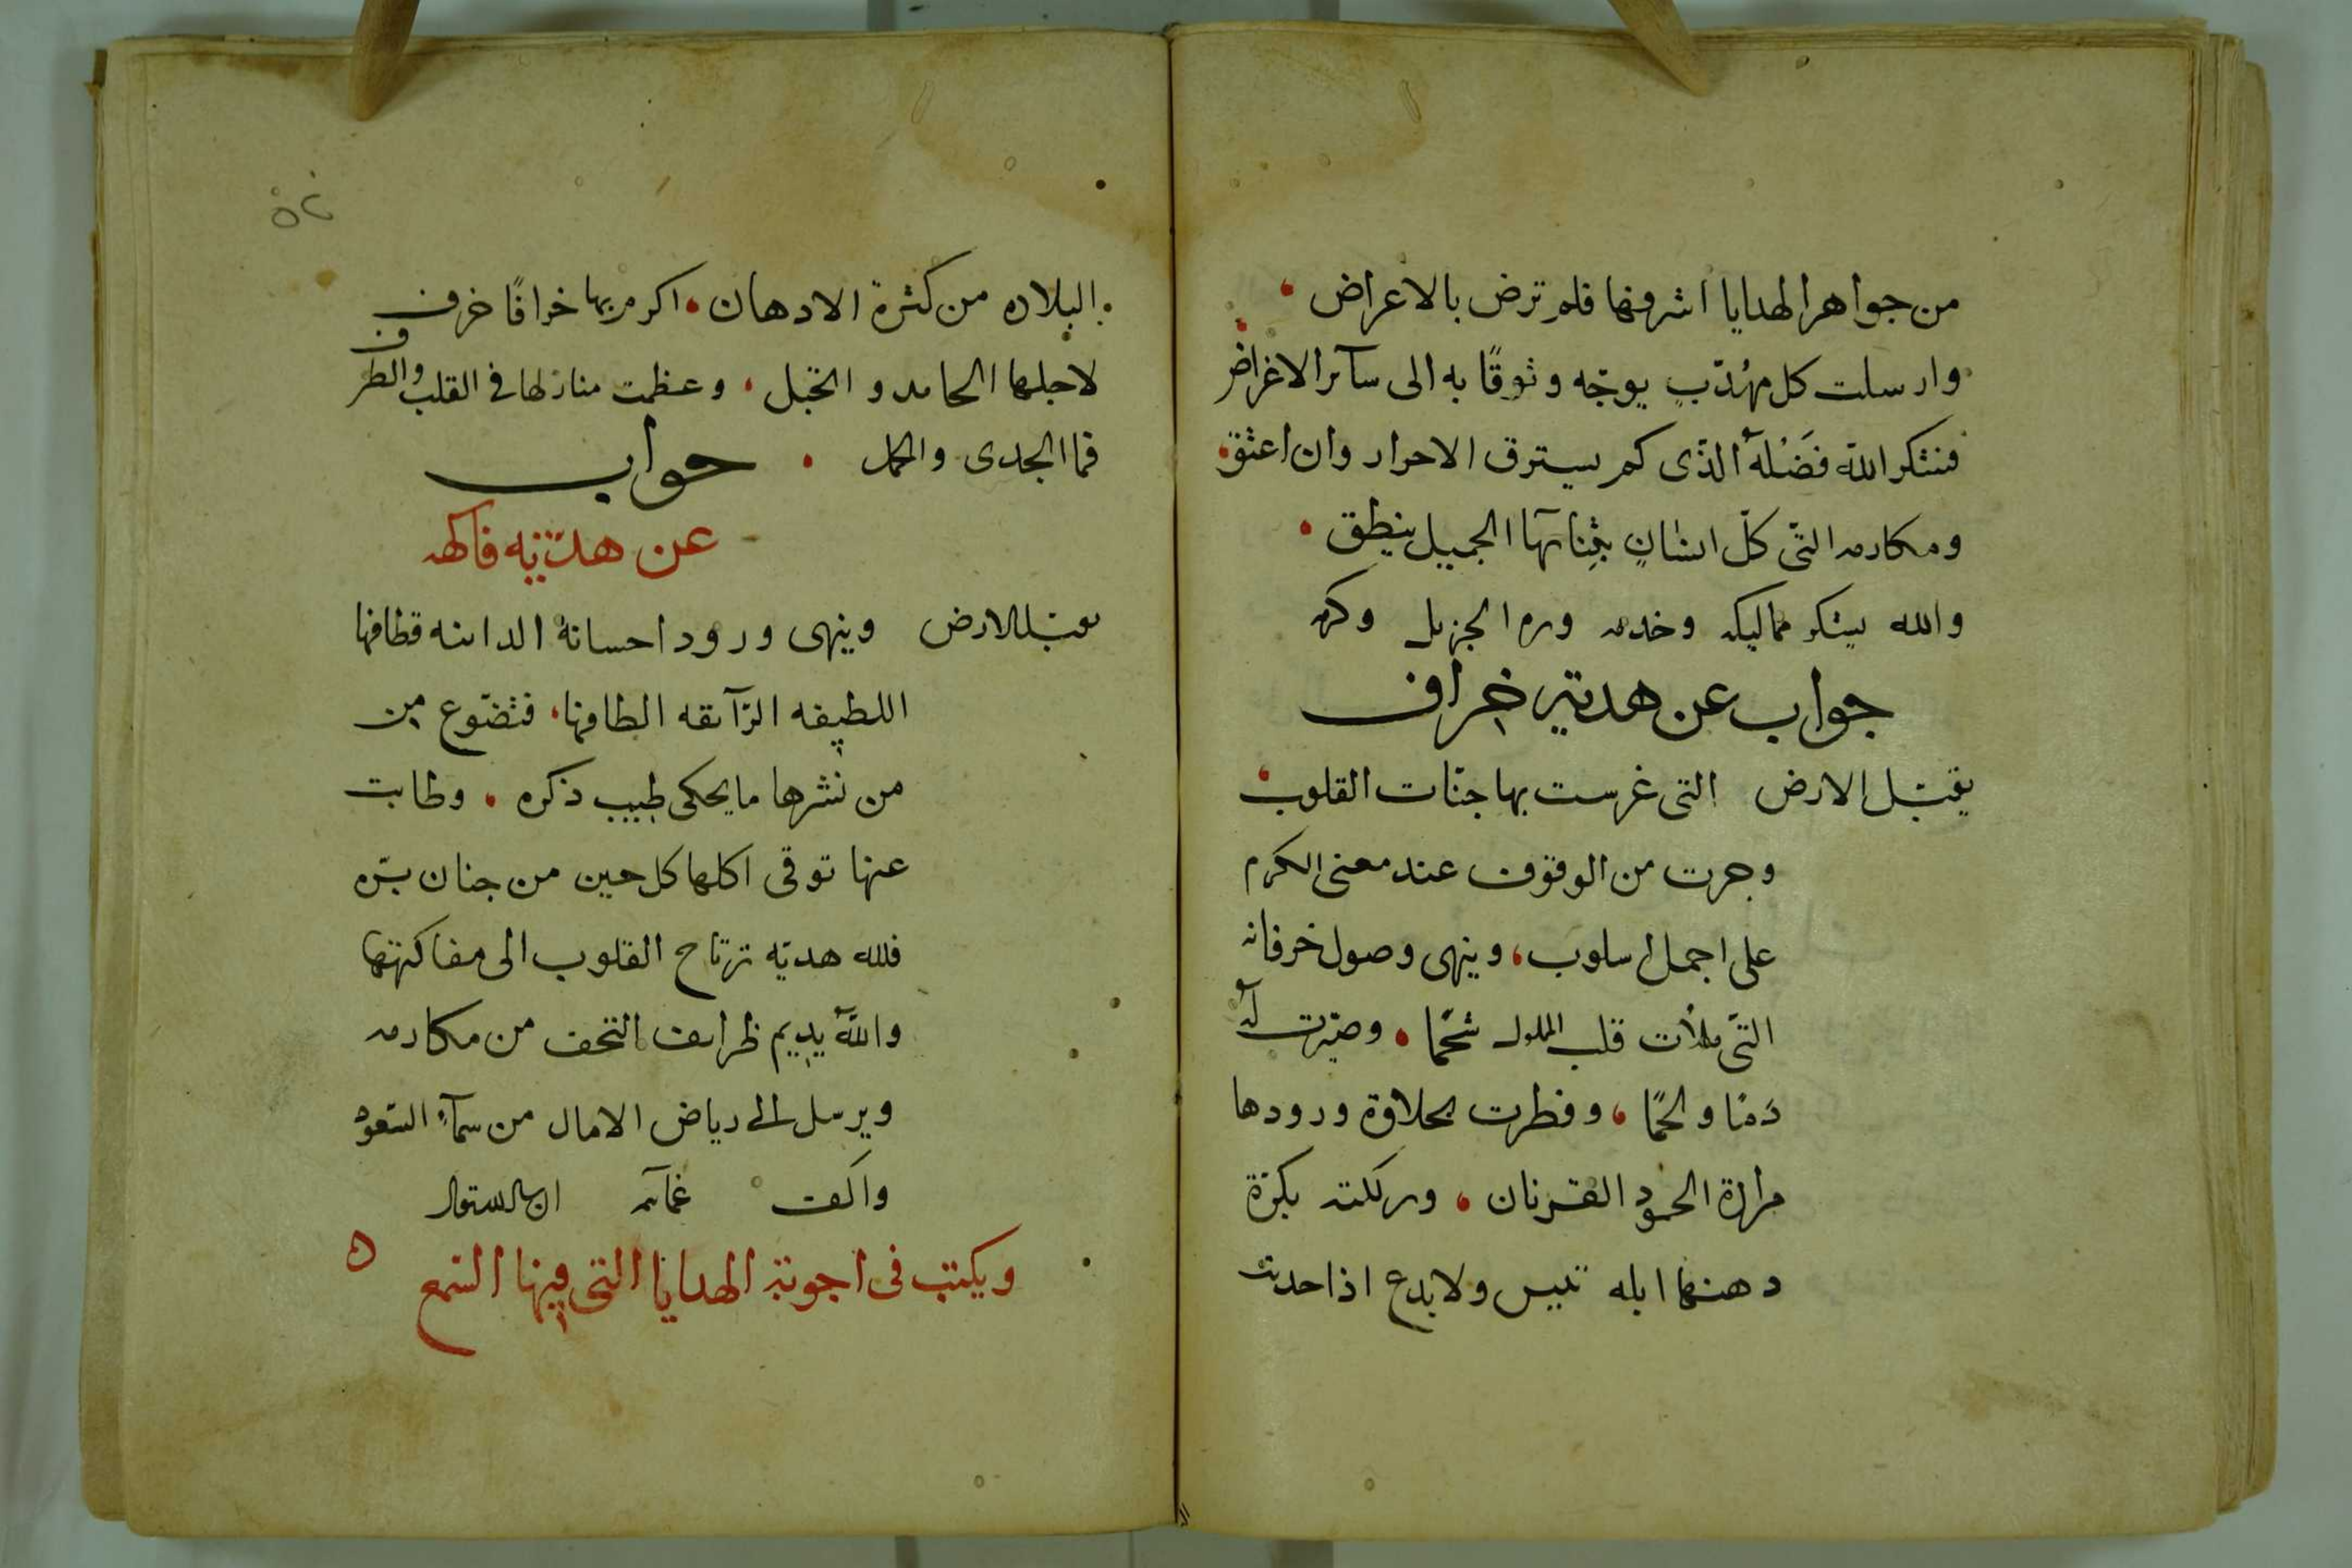 من جواهر الهدايا اشرفها فلم ترض بالاعراض
وارسلت كل مهُذّبٍ يوجّه وثوقًا به الى سآىر الاغراض
فنشكر اللّه فَضْلهُ الذّى كم يسترق الاحرار وان اعتق
ومكارمه التّى كلّ انسٰانٍ بثِنائها الجميل ينطق
والله يشكر مماليكه وخدمه وبره الجزيل وكرمه
جواب عن هدية خراف
يقبّل الارض التى غرست بها جنّات القلوب
وجرت من الوقوف عند معنى الكرم
على اجمل اسلوب، وينهى وصول خرفانه
التّى ملأت قلب الملوك شحمًا وصيّرت لهُ
دَمًا ولحمًا، وفطرت بحلاوة ورودها
مرارة الحسود القرنان
دهنها ابله تىيس ولابدع اذا حدث
البلاده من كثرة الادهان اكرم بها خرافًا خرف
لاجلها الحامد و الخبل، وعظمت منازلها فى القلب والطرف
فما الجدى والحمل
جواب
عن هديّة فاكهه
يقبّل الارض وينهى ورود احسانهُ الدانىه قطافها
اللطيفه الرّآىقه الطافها، فتضوّع من
من نشرها ما يحكى طيب ذكره وطابت
عنها توقى اكلها كل حين من جنان برّه
فلله هديّه ترتاح القلوب الى مفاكهتها
واللّهُ يديم ظراىف التحف من مكارمه
ويرسل الى رياض الامال من سمآءِ السّعود
واكف غمآىمه
ويكتب فى اجوبة الهدايا التى فيها الشمع ه